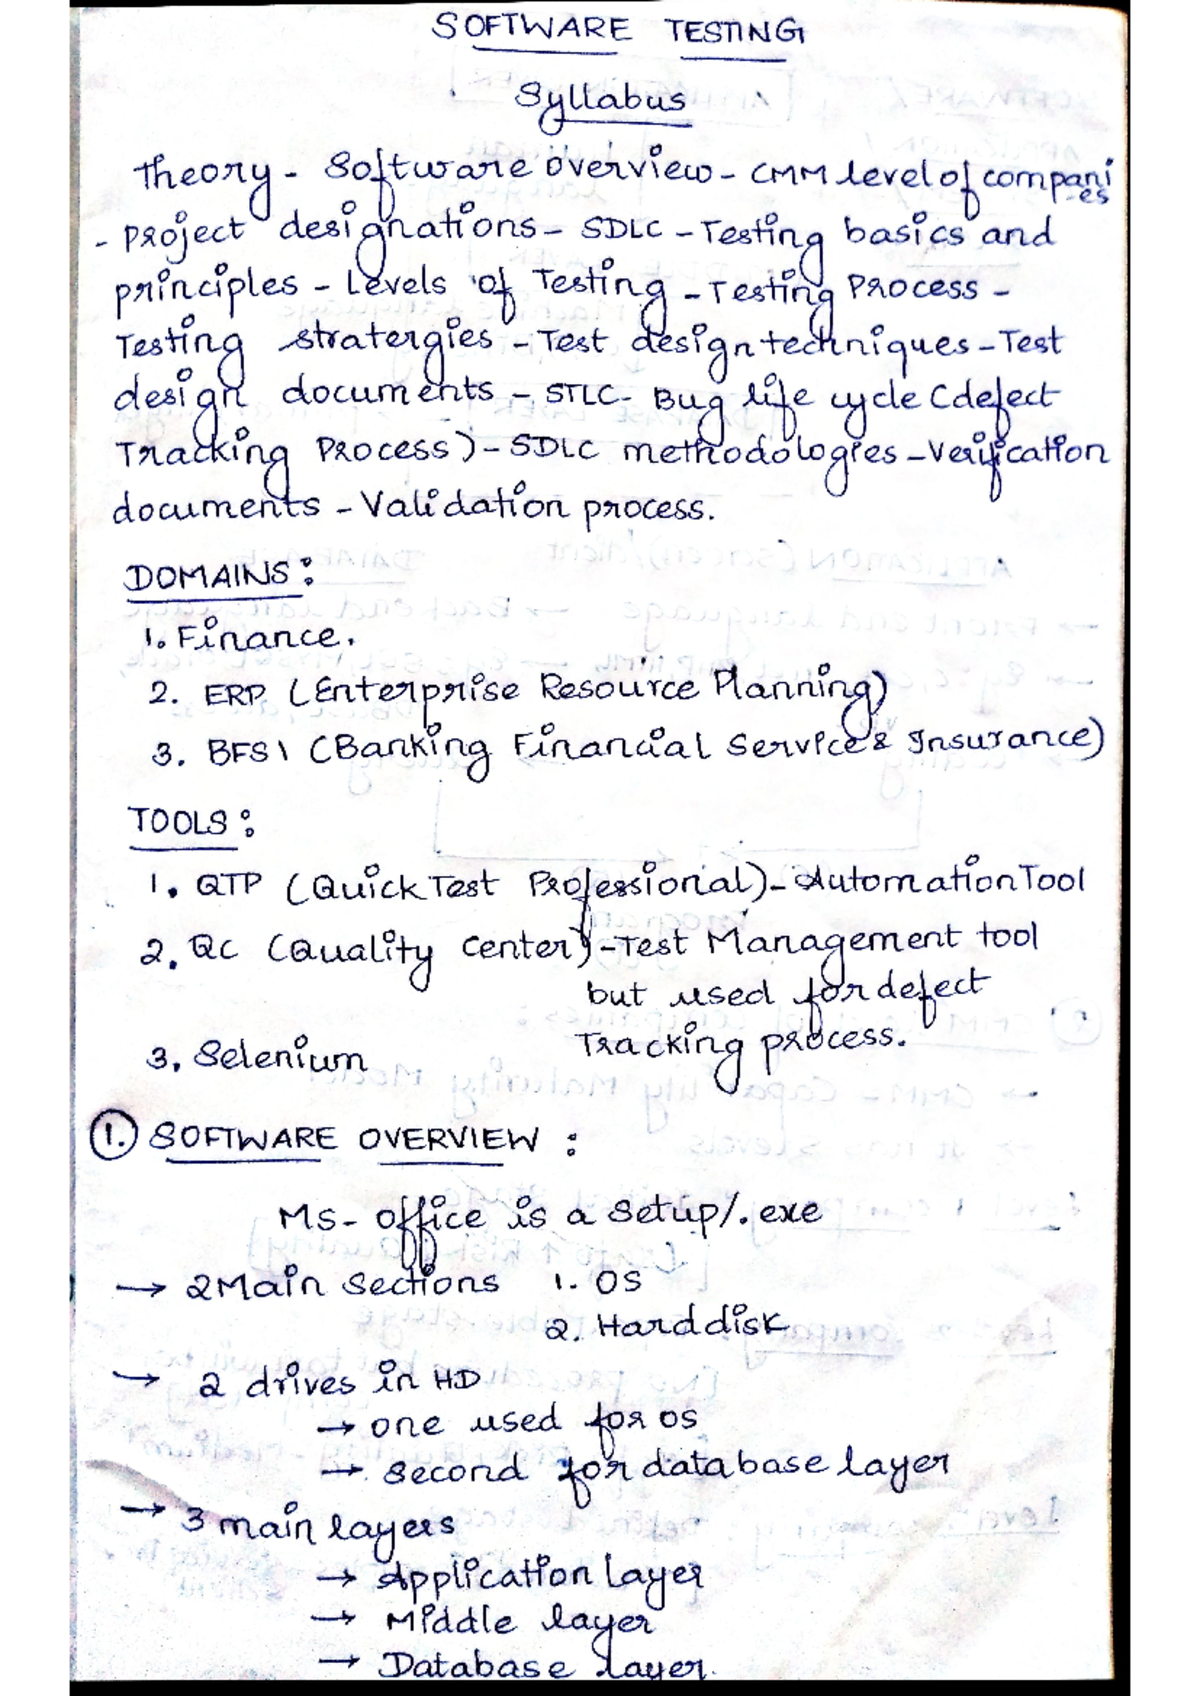 SOFTWARE TESTING
Syllabus
Theory - Software overview - CMM level of companies
- Project designations - SDLC - Testing basics and
principles - Levels of Testing - Testing Process -
Testing stratergies - Test design techniques - Test
design documents - STLC - Bug life cycle (defect
Tracking Process) - SDLC methodologies - Verification
documents - Validation process.
DOMAINS :
1. Finance.
2. ERP (Enterprise Resource Planning)
3. BFSI (Banking Financial Service & Insurance)
TOOLS :
1. QTP (Quick Test Professional) - Automation Tool
2. QC (Quality Center) - Test Management tool
but used for defect
Tracking process.
3. Selenium
1. SOFTWARE OVERVIEW :
MS - office is a setup/.exe
→ 2 Main Sections 1. OS
2. Harddisk
→ 2 drives in HD
→ one used for OS
→ second for database layer
→ 3 main layers
→ Application Layer
→ Middle layer
→ Database layer.